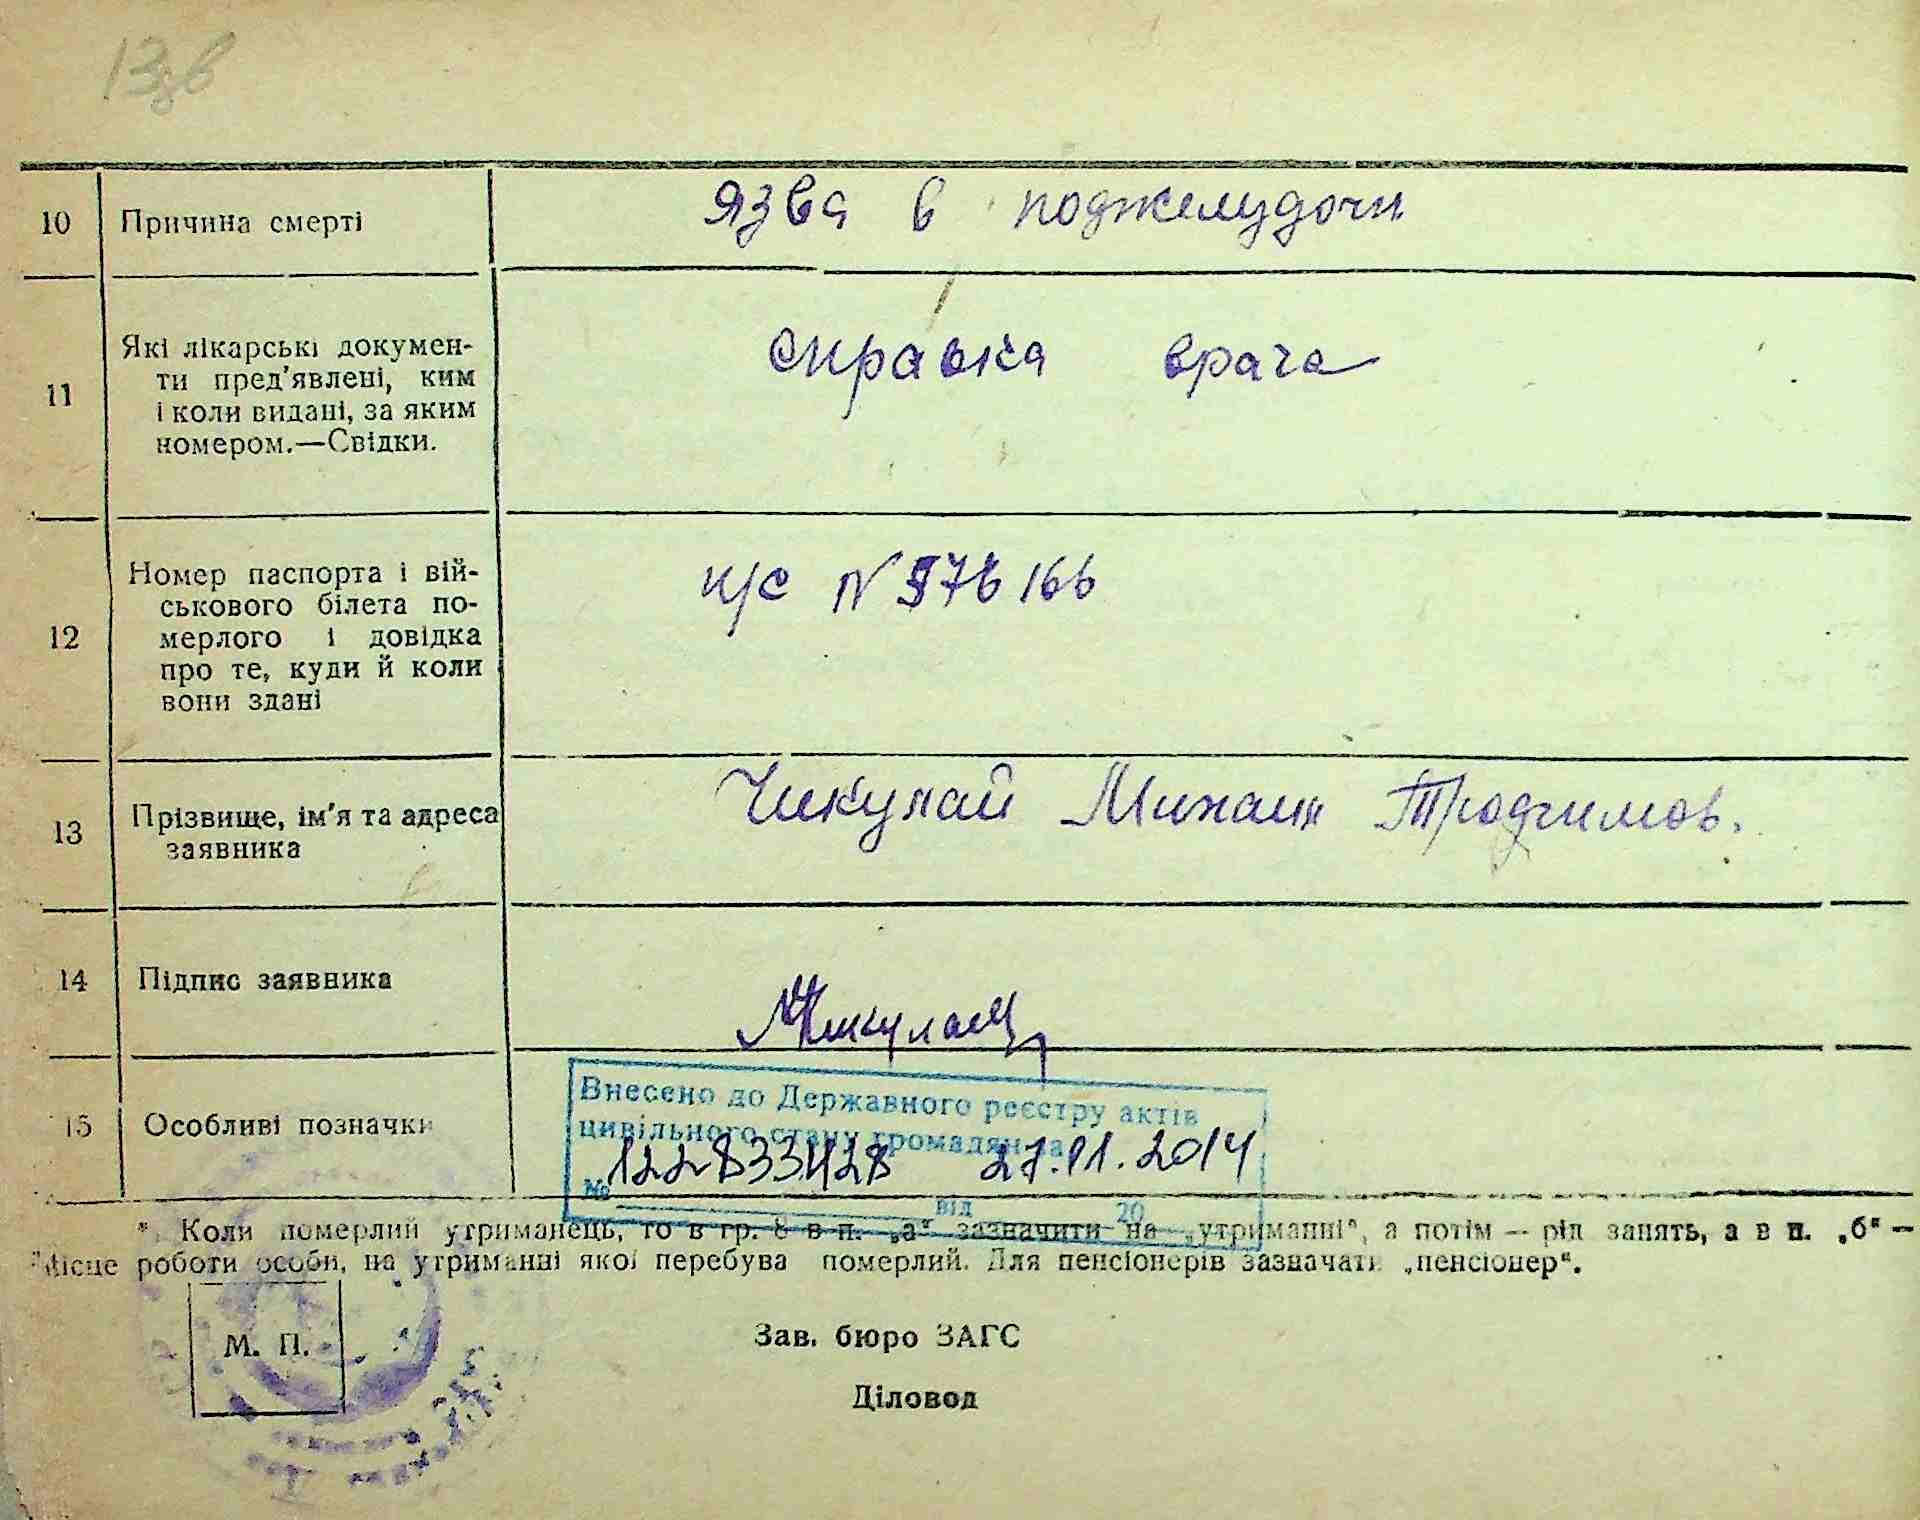 13зв
10 Причина смерті язва в поджелудочи
11 Які лікарські докумен-
ти пред'явлені, ким
і коли видані, за яким
номером.—Свідки.
справка врача
12 Номер паспорта і вій-
ськового білета по-
мерлого і довідка
про те, куди й коли
вони здані
п/с N 576166
13 Прізвище, ім'я та адреса
заявника
Чикулай Михаил Трофимов.
14 Підпис заявника Чикулай
15 Особливі позначки
Внесено до Державного реєстру актів
цивільного стану громадян за
№ 122833428 від 27.01.2014
20
*. Коли померлий утриманець, то в гр. 8 в п. „а“ зазначити на „утриманні“, а потім — рід занять, а в п. „б“ —
місце роботи особи, на утриманні якої перебува померлий. Для пенсіонерів зазначать „пенсіонер“.
М. П.
Зав. бюро ЗАГС
Діловод